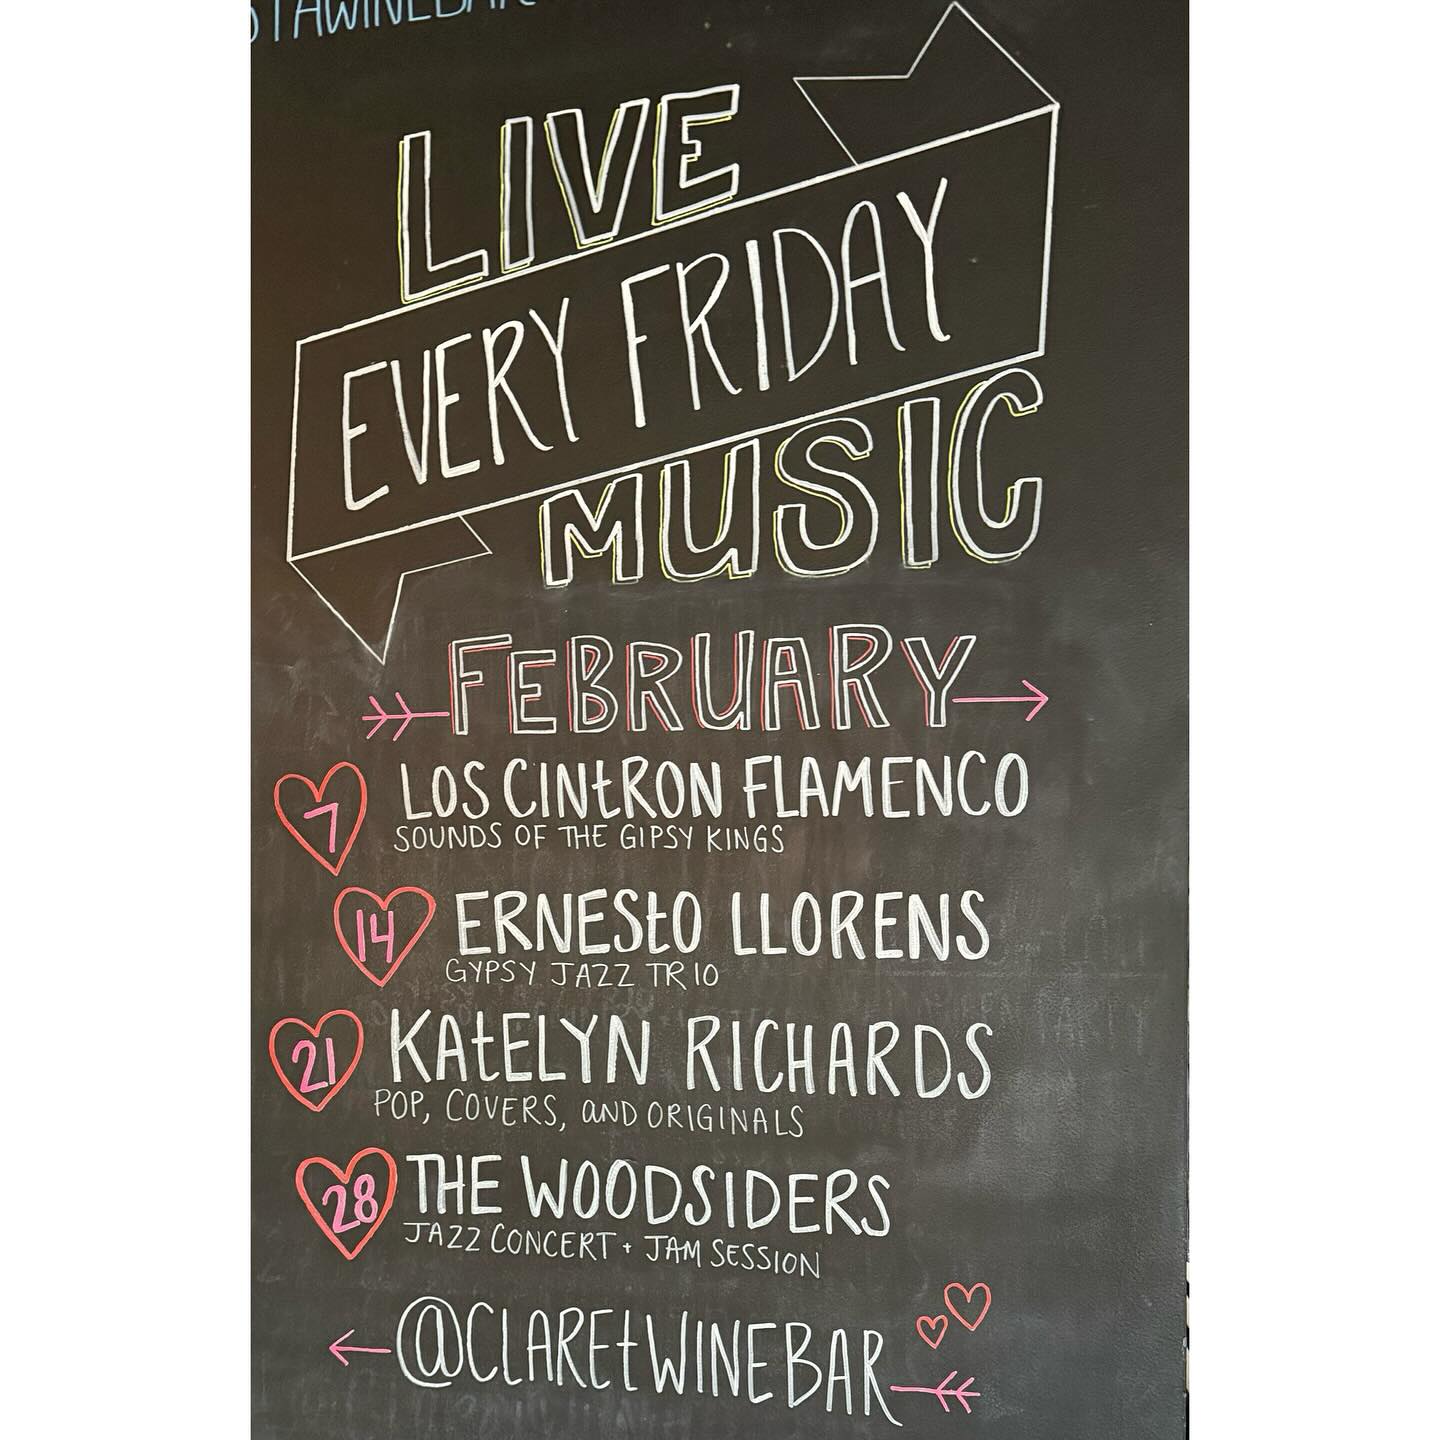 LIVE
EVERY FRIDAY
MUSIC
FEBRUARY
7 LOS CINtRON FLAMENCO
SOUNDS OF THE GIPSY KINGS
14 ERNEStO LLORENS
GYPSY JAZZ TRIO
21 KAtELYN RICHARDS
POP, COVERS, aND ORIGINALS
28 THE WOODSIDERS
JAZZ CONCERT + JAM SESSION
@CLAREtWINEBAR